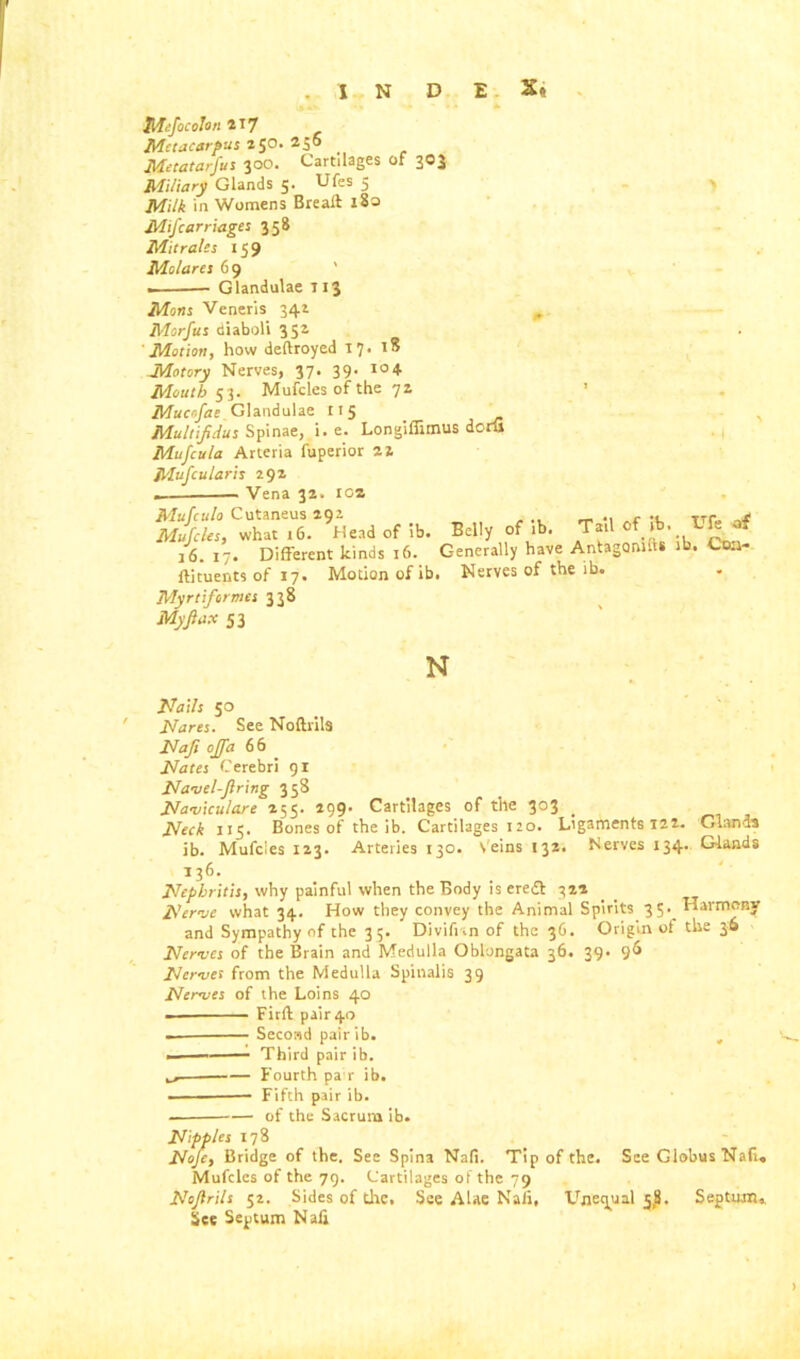 INDEX.
Meſocolon 217
Metacarpus 250. 256
Metatarſus 300. Cartilages of 303
Miliary Glands 5. Uſes 5
Milk in Womens Breaſt 180
Miſcarriages 358
Mitrales 159
Molares 69
——— Glandulae 113
Mons Veneris 342
Morſus diaboli 352
Motion, how deſtroyed 17. 18
Motory Nerves, 37. 39. 104
Mouth 53. Muſcles of the 72
Mucoſae Glandulae 115
Multifidus Spinae, i. e. Longiſſimus dorſi
Muſcula Arteria ſuperior 22
Muſcularis 292
——— Vena 32. 102
Muſculo Cutaneus 292
Muſcles, what 16. Head of ib. Belly of ib. Tail of ib. Uſe of
16. 17. Different kinds 16. Generally have Antagoniſts ib. Con-
ſtituents of 17. Motion of ib. Nerves of the ib.
Myrtiformes 338
Myſtax 53
N
Nails 50
Nares. See Noſtrils
Naſi oſſa 66
Nates Cerebri 91
Navel-ſtring 358
Naviculare 255. 299. Cartilages of the 303
Neck 115. Bones of the ib. Cartilages 120. Ligaments 122. Glands
ib. Muſcles 123. Arteries 130. Veins 132. Nerves 134. Glands
136.
Nephritis, why painful when the Body is erect 322
Nerve what 34. How they convey the Animal Spirits 35. Harmony
and Sympathy of the 35. Diviſion of the 36. Origin of the 36
Nerves of the Brain and Medulla Oblongata 36. 39. 96
Nerves from the Medulla Spinalis 39
Nerves of the Loins 40
——— Firſt pair 40
——— Second pair ib.
——— Third pair ib.
——— Fourth pair ib.
——— Fifth pair ib.
——— of the Sacrum ib.
Nipples 178
Noſe, Bridge of the. See Spina Naſi. Tip of the. See Globus Naſi.
Muſcles of the 79. Cartilages of the 79
Noſtrils 52. Sides of the. See Alae Naſi, Unequal 58. Septum.
See Septum Naſi